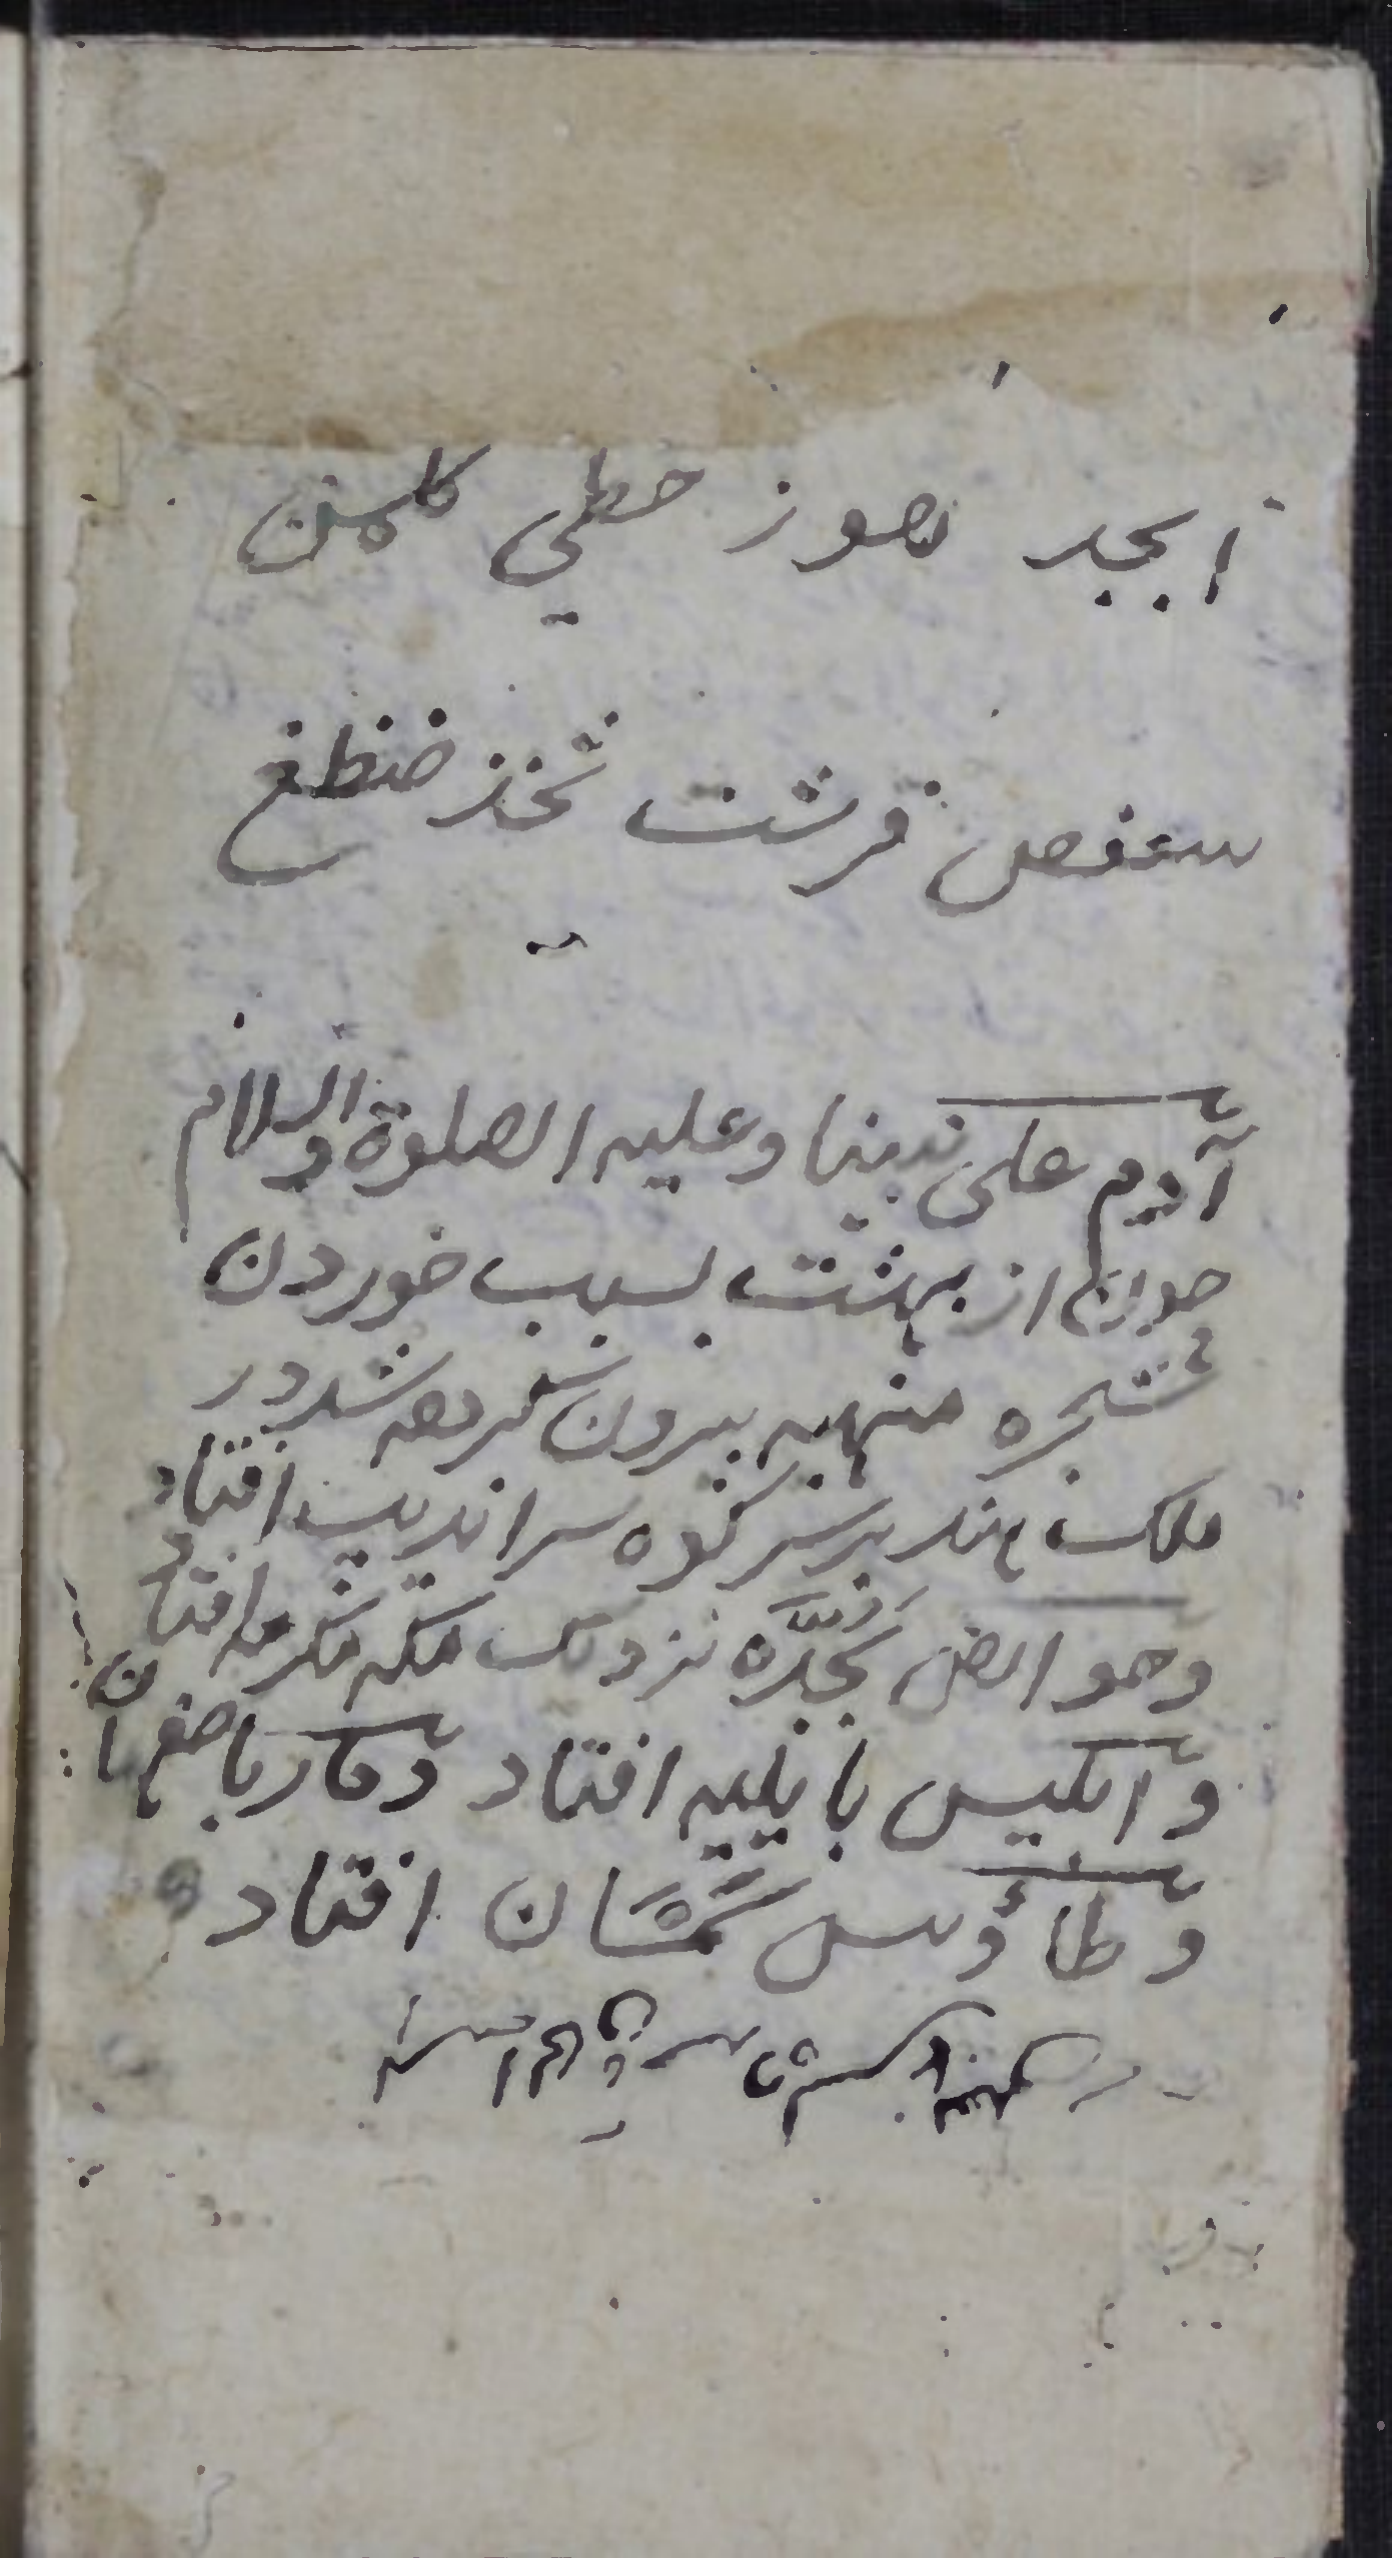 ابجد هوز حطي كلمن
سعفص قرشت ثخذ ضظغ
آدم على نبينا وعليه الصلوة والسلام
چون از بهشت بسبب خوردن
شجره منهيه بيرون شد در
ملک هند بر سر کوه سرانديب افتاد
وحوا بجدّه نزديک مکه مکرمه افتاد
وابليس بايليه افتاد ومار باصفهان
وطاؤس افتاد